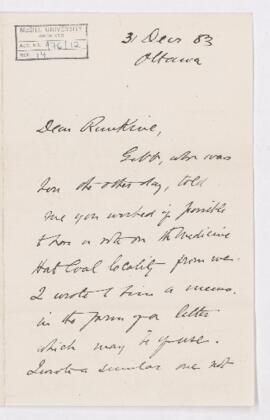 McGILL UNIVERSITY
ARCHIVES
ACC. NO. 976/12
REF. 14
31 Decr 83
Ottawa
Dear Rankine,
Gibb, who was
here the other day, told
me you wished if possible
to have a note on the Medicine
Hat Coal locality from me.
I wrote him a memo.
in the form of a letter
which may be of use.
I wrote a similar one not